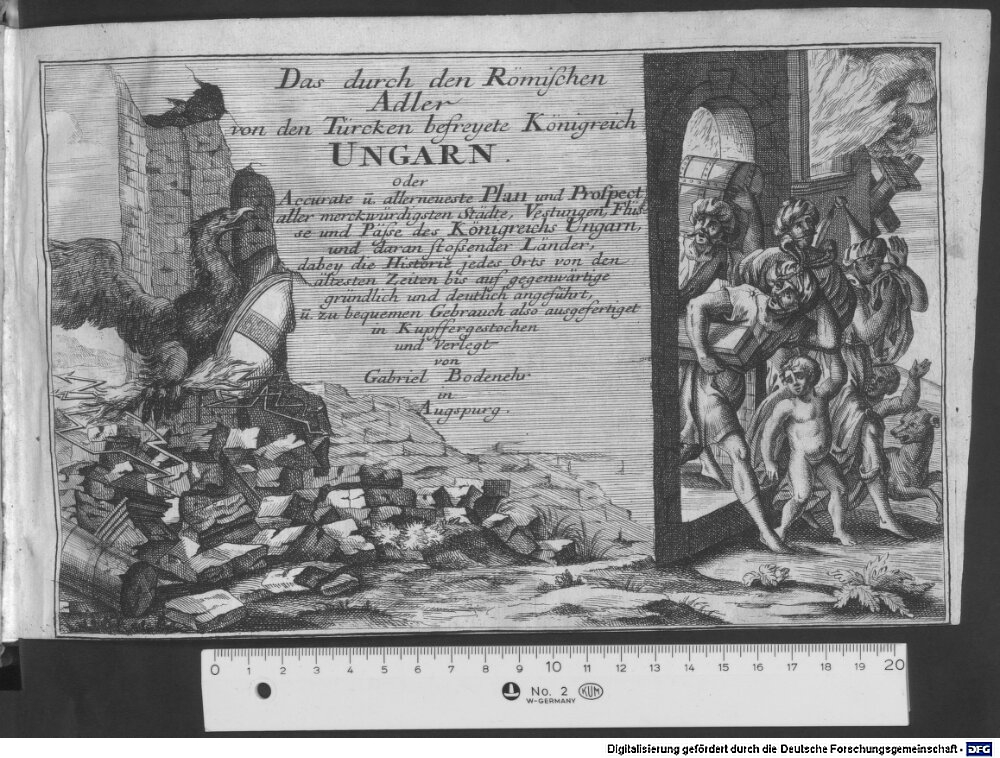 Das durch den Römischen
Adler
von den Türcken befreyete Königreich
UNGARN.
oder
Accurate ū. allerneueste Plan und Prospect
aller merckwürdigsten Städte, Vestungen, Flüs-
se und Pässe des Königreichs Ungarn,
und daran stossender Länder,
dabey die Historie jedes Orts von den
ältesten Zeiten bis auf gegenwärtige
gründlich und deutlich angeführt,
ū. zu bequemen Gebrauch also ausgefertiget
in Kupffergestochen
und Verlegt
von
Gabriel Bodenehr
in
Augspurg.
0 1 2 3 4 5 6 7 8 9 10 11 12 13 14 15 16 17 18 19 20
No. 2 KUM
W-GERMANY
Digitalisierung gefördert durch die Deutsche Forschungsgemeinschaft - DFG